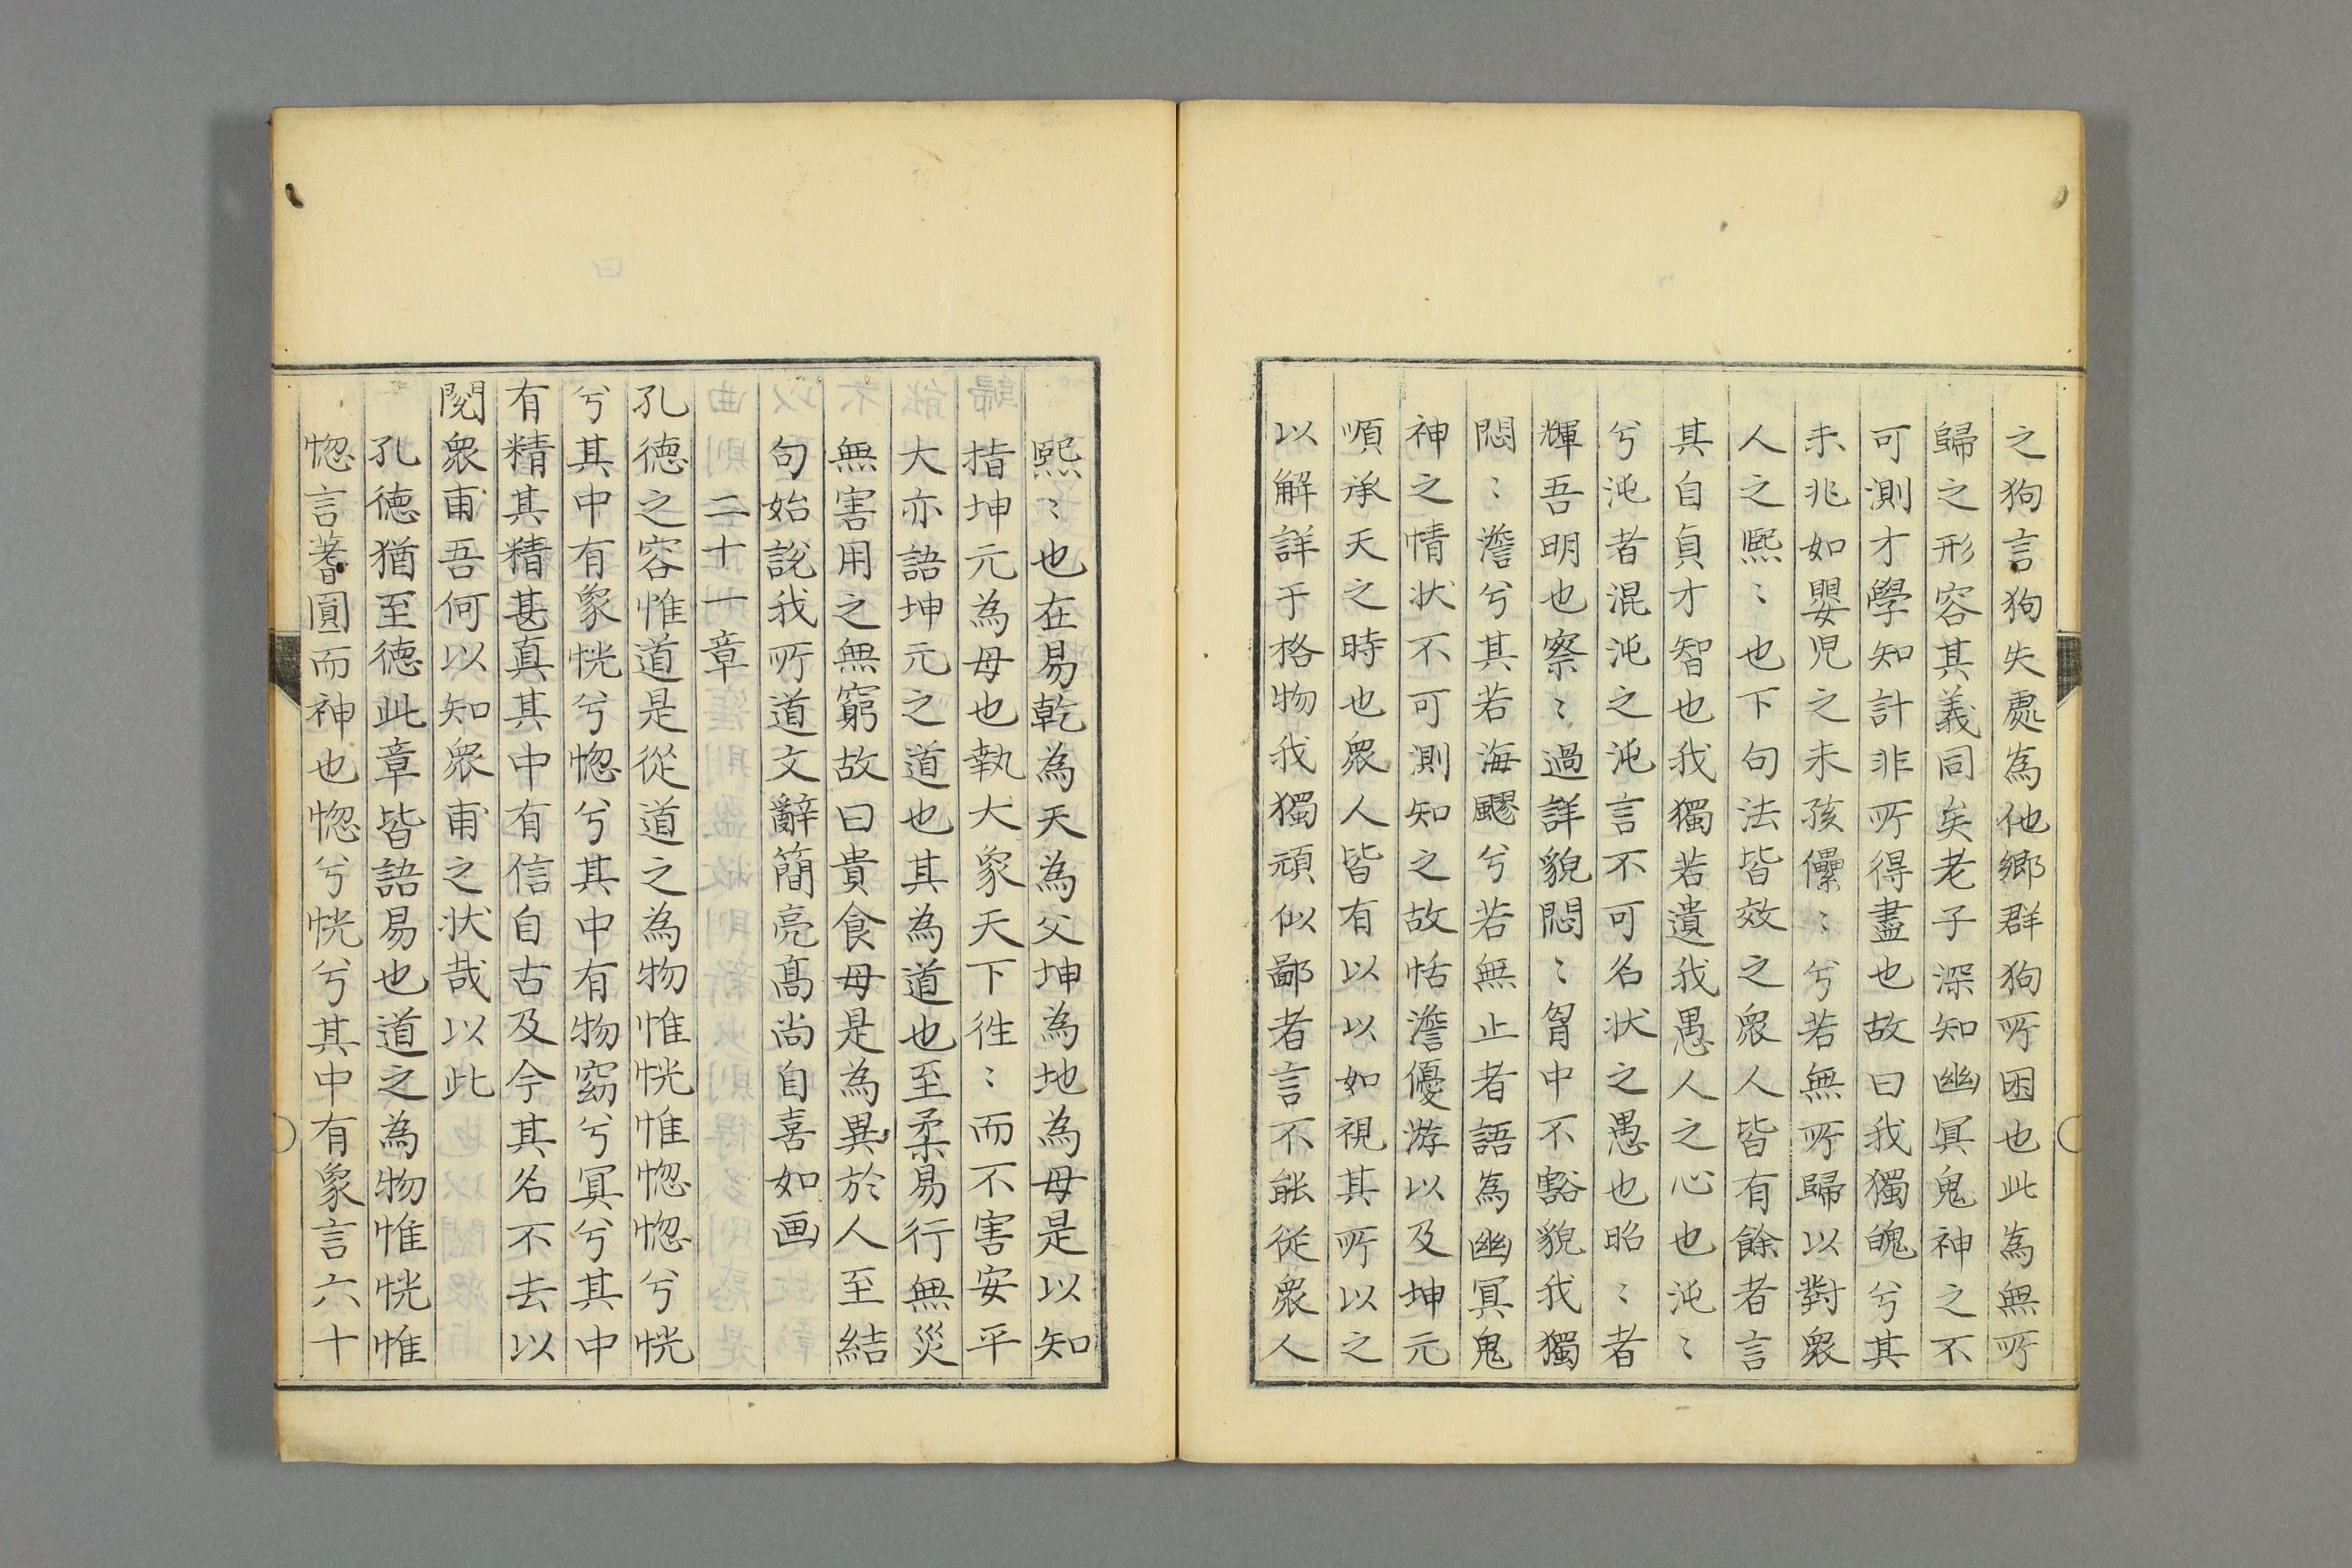 之狗言狗失處為他鄉群狗所困也此為無所
歸之形容其義同矣老子深知幽冥鬼神之不
可測才學知計非所得盡也故曰我獨魄兮其
未兆如嬰児之未孩儽〻兮若無所歸以對衆
人之熈〻也下句法皆效之衆人皆有餘者言
其自貞才智也我獨若遺我愚人之心也沌〻
兮沌者混沌之沌言不可名状之愚也昭〻者
輝吾明也察〻過詳貌悶〻胷中不豁貌我獨
悶〻澹兮其若海飂兮若無止者語為幽冥鬼
神之情状不可測知之故恬澹優游以及坤元
順承天之時也衆人皆有以以如視其所以之
以解詳于格物我獨頑似鄙者言不能從衆人
熈〻也在易乾為天為父坤為地為母是以知
指坤元為母也執大象天下徃〻而不害安平
大亦語坤元之道也其為道也至柔易行無災
無害用之無窮故曰貴食母是為異於人至結
句始說我所道文辭簡亮髙尚自喜如画
二十一章
孔德之容惟道是從道之為物惟恍惟惚惚兮恍
兮其中有象恍兮惚兮其中有物窈兮冥兮其中
有精其精甚真其中有信自古及今其名不去以
閱衆甫吾何以知衆甫之状哉以此
孔德猶至德此章皆語易也道之為物惟恍惟
惚言蓍圓而神也惚兮恍兮其中有象言六十